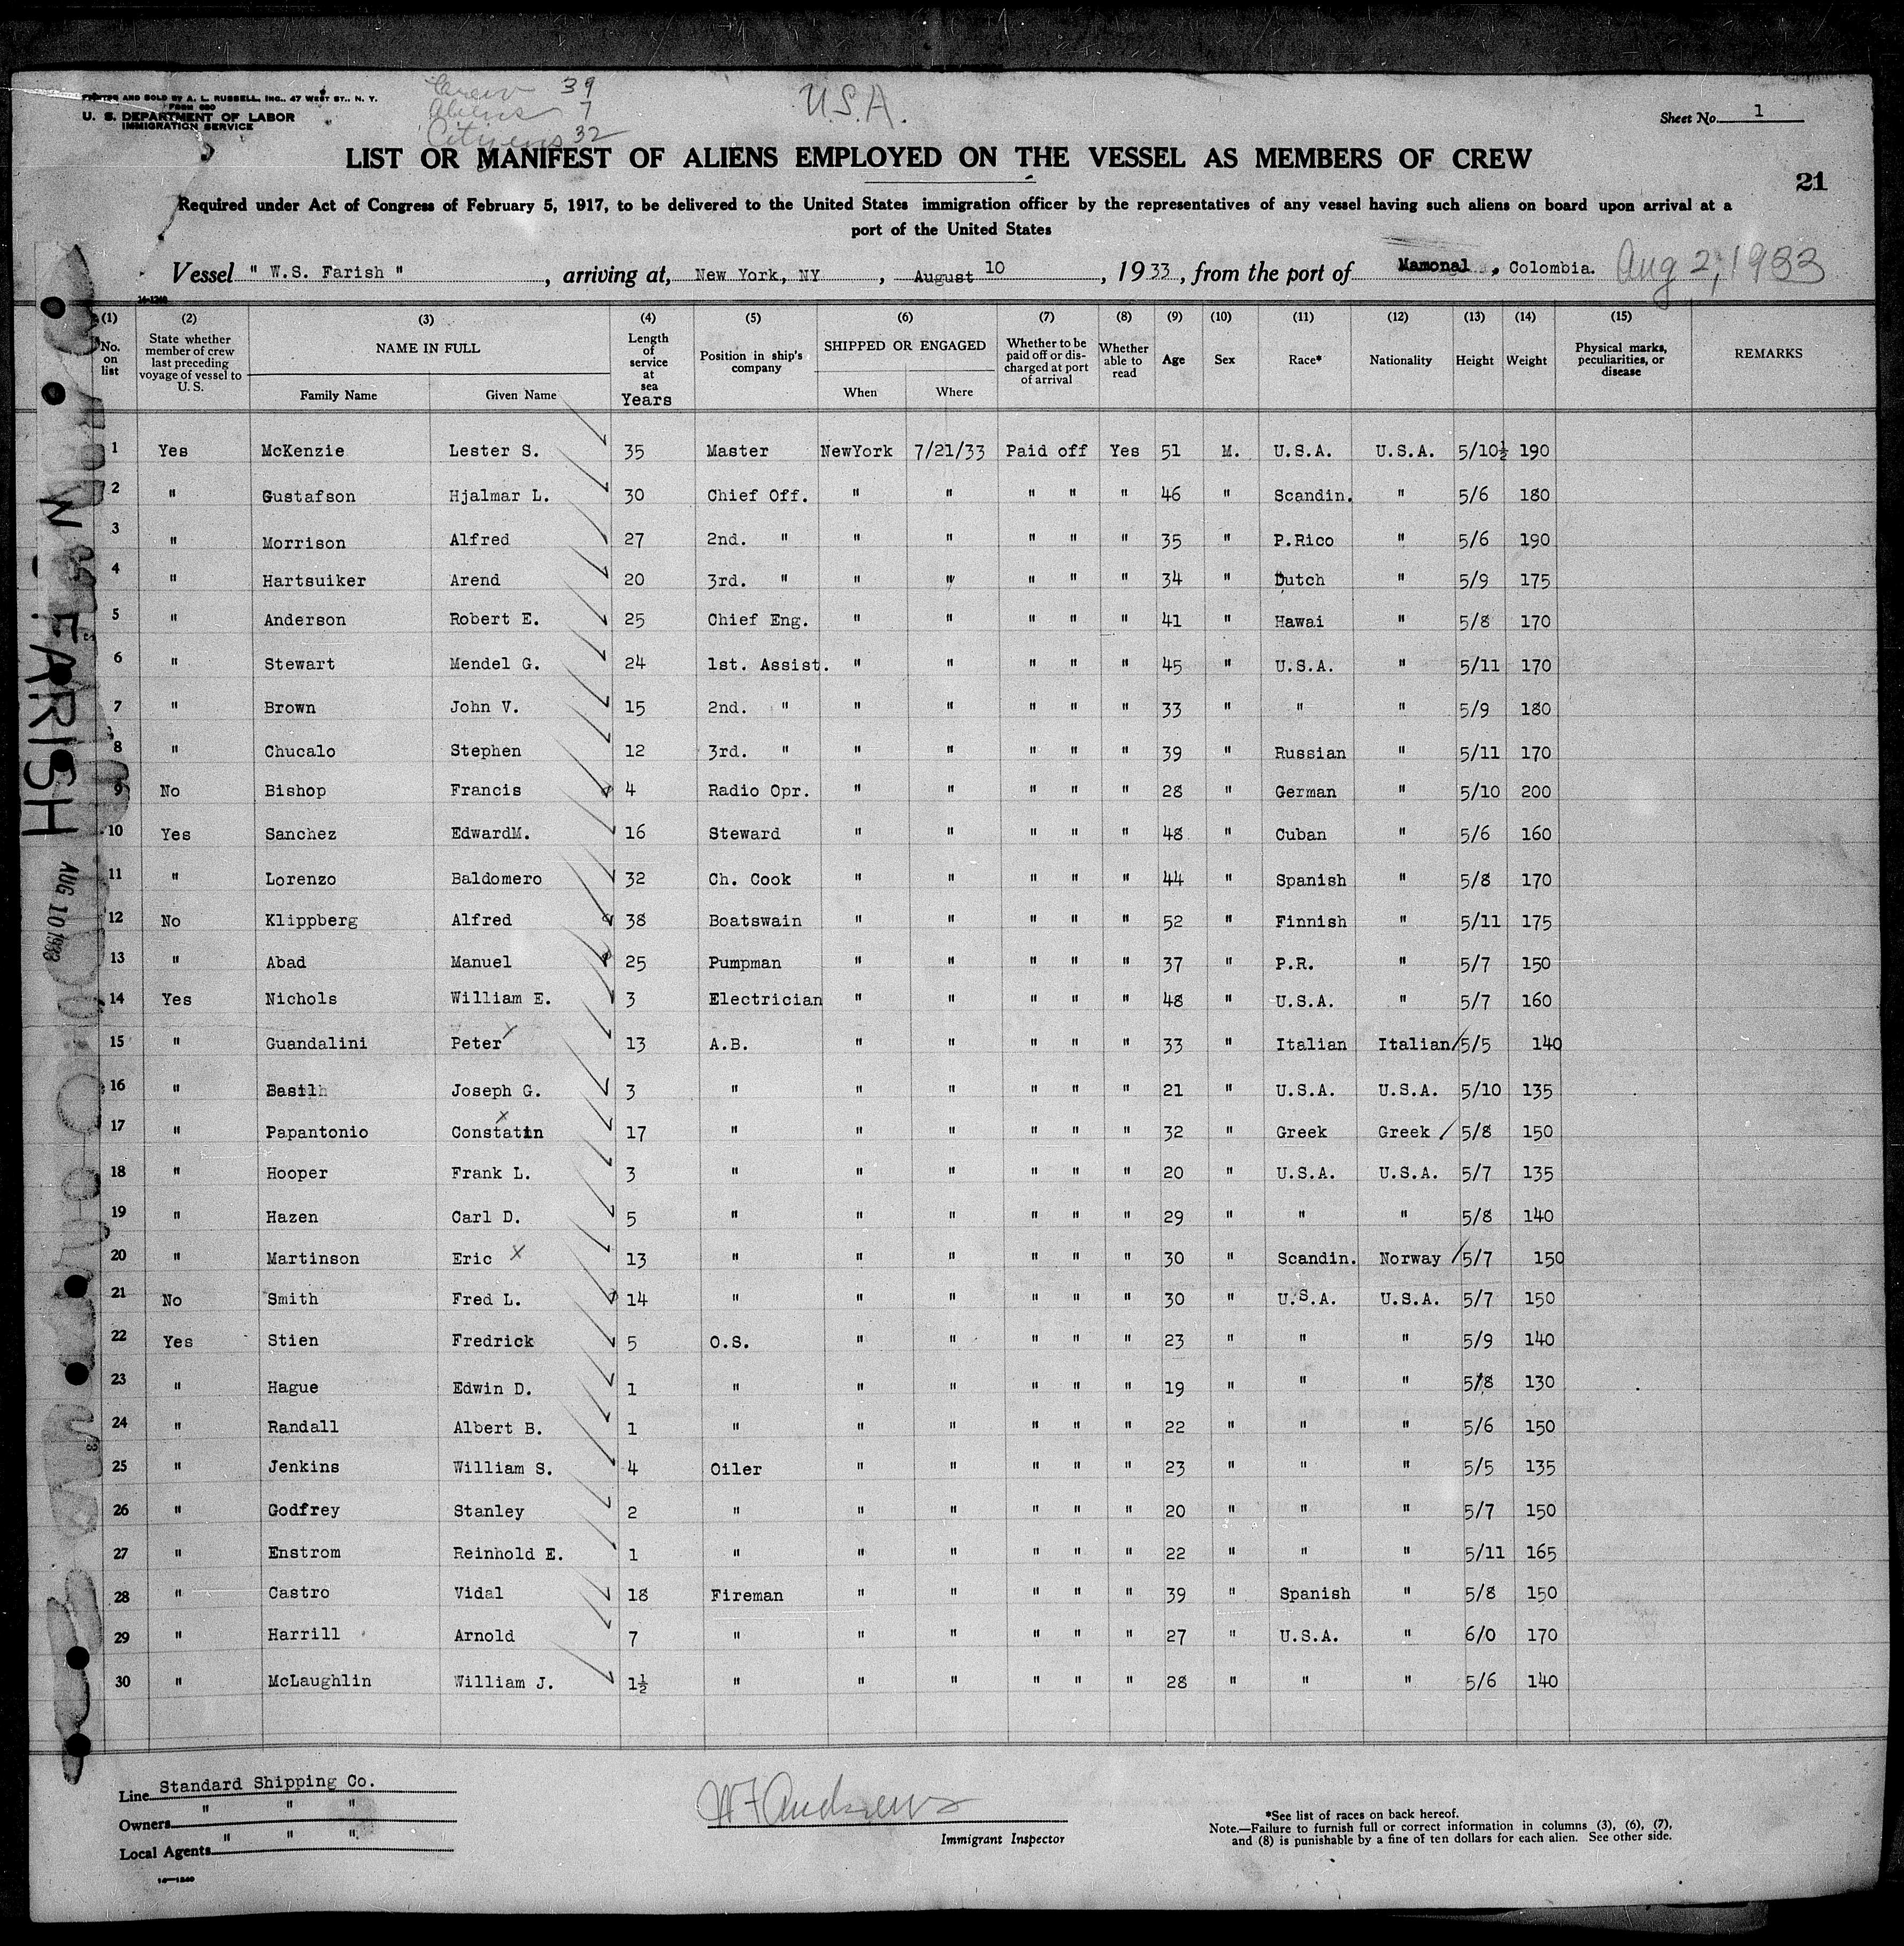 PRINTED AND SOLD BY A. L. RUSSELL, INC., 47 WEST ST., N. Y.
FORM 680
U. S. DEPARTMENT OF LABOR
IMMIGRATION SERVICE
Crew 39
Aliens 7
Citizens 32
U.S.A.
Sheet No. 1
LIST OR MANIFEST OF ALIENS EMPLOYED ON THE VESSEL AS MEMBERS OF CREW
21
Required under Act of Congress of February 5, 1917, to be delivered to the United States immigration officer by the representatives of any vessel having such aliens on board upon arrival at a
port of the United States
Vessel " W.S. Farish ", arriving at, New York, NY, August 10, 1933, from the port of Mamonal, Colombia. Aug 2, 1933
14-1240
(1) (2) (3) (4) (5) (6) (7) (8) (9) (10) (11) (12) (13) (14) (15)
No. on list
State whether member of crew last preceding voyage of vessel to U. S.
NAME IN FULL
Family Name
Given Name
Length of service at sea
Years
Position in ship's company
SHIPPED OR ENGAGED
When
Where
Whether to be paid off or discharged at port of arrival
Whether able to read
Age
Sex
Race*
Nationality
Height
Weight
Physical marks, peculiarities, or disease
REMARKS
1 Yes McKenzie Lester S. 35 Master NewYork 7/21/33 Paid off Yes 51 M. U.S.A. U.S.A. 5/10½ 190
2 " Gustafson Hjalmar L. 30 Chief Off. " " " " " 46 " Scandin. " 5/6 180
3 " Morrison Alfred 27 2nd. " " " " " " 35 " P.Rico " 5/6 190
4 " Hartsuiker Arend 20 3rd. " " " " " " 34 " Dutch " 5/9 175
5 " Anderson Robert E. 25 Chief Eng. " " " " " 41 " Hawai " 5/8 170
6 " Stewart Mendel G. 24 1st. Assist. " " " " " 45 " U.S.A. " 5/11 170
7 " Brown John V. 15 2nd. " " " " " " 33 " " " 5/9 180
8 " Chucalo Stephen 12 3rd. " " " " " " 39 " Russian " 5/11 170
9 No Bishop Francis 4 Radio Opr. " " " " " 28 " German " 5/10 200
10 Yes Sanchez EdwardM. 16 Steward " " " " " 48 " Cuban " 5/6 160
11 " Lorenzo Baldomero 32 Ch. Cook " " " " " 44 " Spanish " 5/8 170
12 No Klippberg Alfred 38 Boatswain " " " " " 52 " Finnish " 5/11 175
13 " Abad Manuel 25 Pumpman " " " " " 37 " P.R. " 5/7 150
14 Yes Nichols William E. 3 Electrician " " " " " 48 " U.S.A. " 5/7 160
15 " Guandalini Peter 13 A.B. " " " " " 33 " Italian Italian 5/5 140
16 " Basil Joseph G. 3 " " " " " " 21 " U.S.A. U.S.A. 5/10 135
17 " Papantonio Constatin 17 " " " " " " 32 " Greek Greek 5/8 150
18 " Hooper Frank L. 3 " " " " " " 20 " U.S.A. U.S.A. 5/7 135
19 " Hazen Carl D. 5 " " " " " " 29 " " " 5/8 140
20 " Martinson Eric 13 " " " " " " 30 " Scandin. Norway 5/7 150
21 No Smith Fred L. 14 " " " " " " 30 " U.S.A. U.S.A. 5/7 150
22 Yes Stien Fredrick 5 O.S. " " " " " 23 " " " 5/9 140
23 " Hague Edwin D. 1 " " " " " " 19 " " " 5/8 130
24 " Randall Albert B. 1 " " " " " " 22 " " " 5/6 150
25 " Jenkins William S. 4 Oiler " " " " " 23 " " " 5/5 135
26 " Godfrey Stanley 2 " " " " " " 20 " " " 5/7 150
27 " Enstrom Reinhold E. 1 " " " " " " 22 " " " 5/11 165
28 " Castro Vidal 18 Fireman " " " " " 39 " Spanish " 5/8 150
29 " Harrill Arnold 7 " " " " " " 27 " U.S.A. " 6/0 170
30 " McLaughlin William J. 1½ " " " " " " 28 " " " 5/6 140
W.S. FARISH
AUG 10 1933
Line Standard Shipping Co.
Owners " " "
Local Agents " " "
14-1240
W F Andrews
Immigrant Inspector
*See list of races on back hereof.
Note.—Failure to furnish full or correct information in columns (3), (6), (7),
and (8) is punishable by a fine of ten dollars for each alien. See other side.